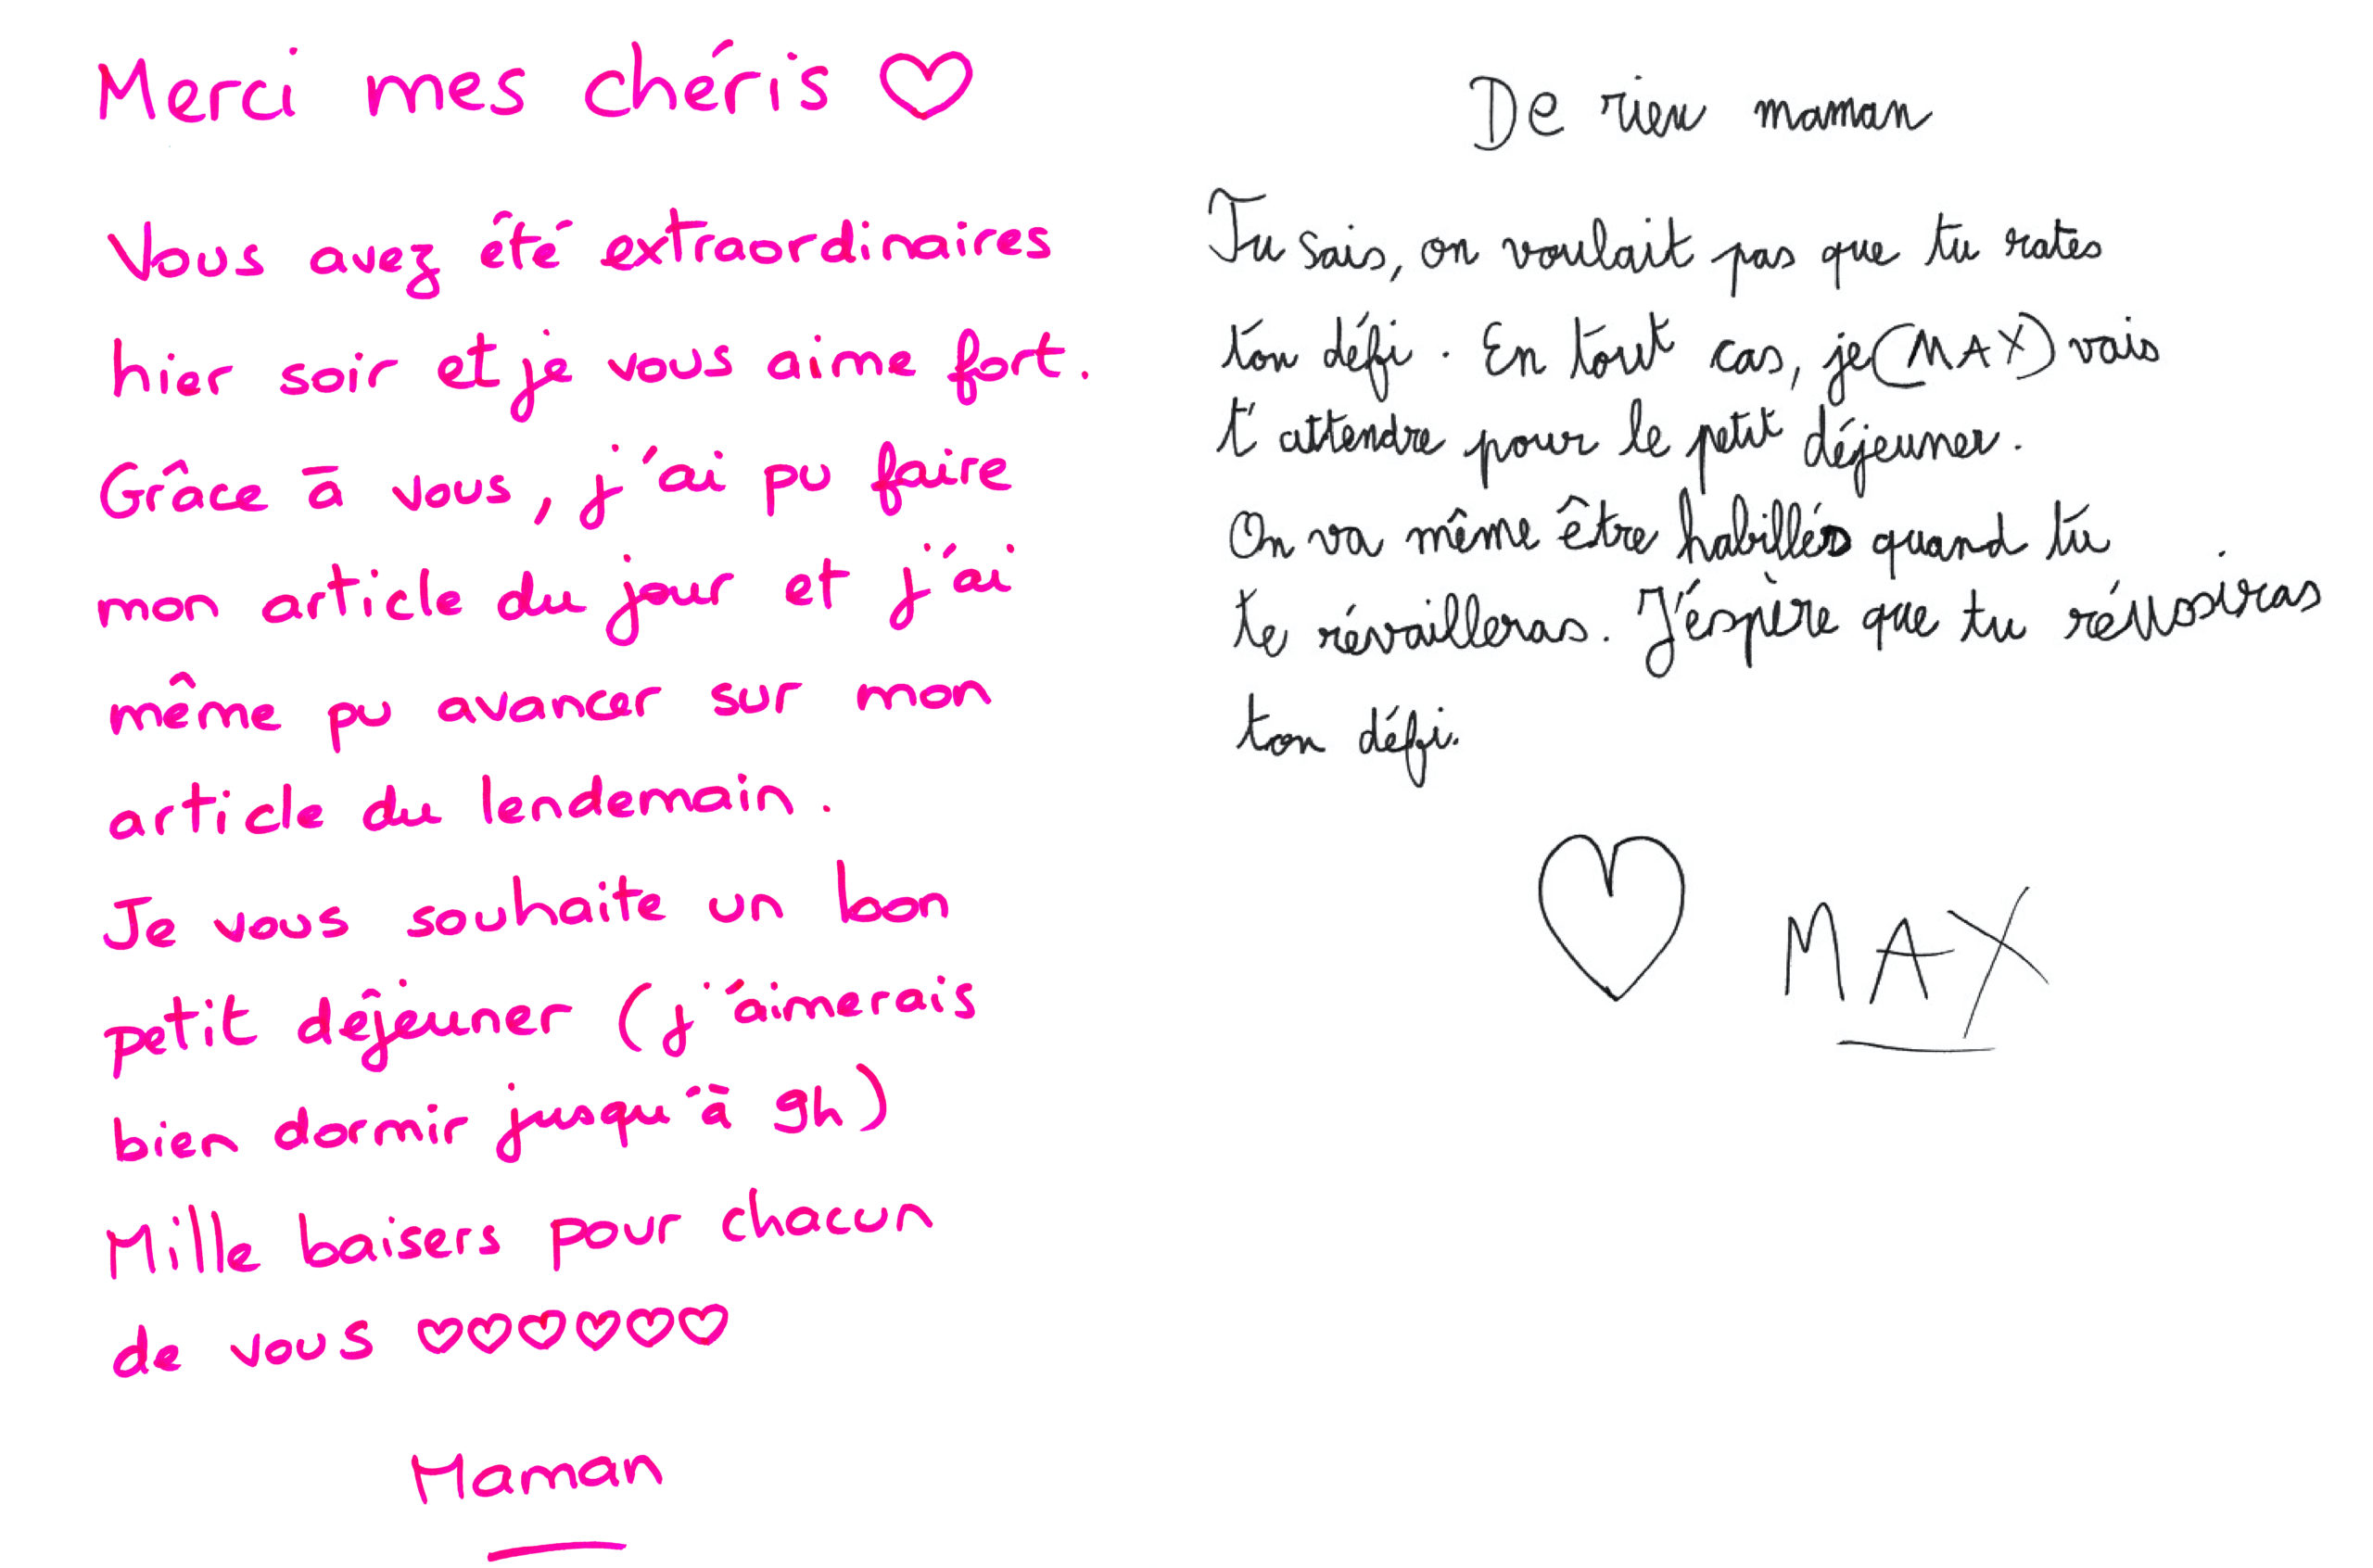 Merci mes chéris ♡
Vous avez été extraordinaires
hier soir et je vous aime fort.
Grâce à vous, j'ai pu faire
mon article du jour et j'ai
même pu avancer sur mon
article du lendemain.
Je vous souhaite un bon
petit déjeuner (j'aimerais
bien dormir jusqu'à 9h)
Mille baisers pour chacun
de vous ♡♡♡♡♡♡
Maman
De rien maman
Tu sais, on voulait pas que tu rates
ton défi. En tout cas, je (MAX) vais
t'attendre pour le petit déjeuner.
On va même être habillés quand tu
te révailleras. J'éspère que tu réussiras
ton défi.
♡ MAX